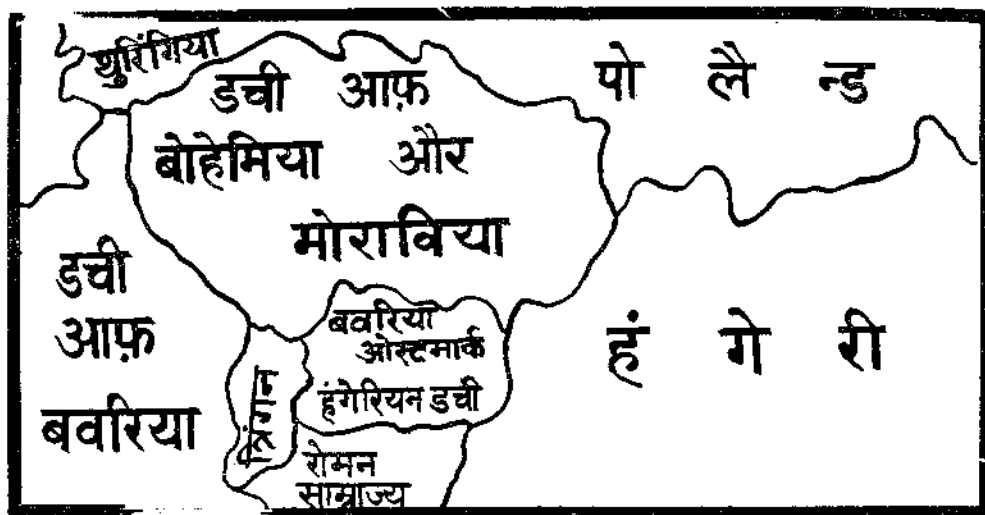 थुरिंगिया
डची आफ़
बोहेमिया और
मोराविया
पो लै न्ड
डची
आफ़
बवरिया
बवरिया
ओस्टमार्क
हंगेरियन डची
त्रिंगन
रोमन
साम्राज्य
हं गे री